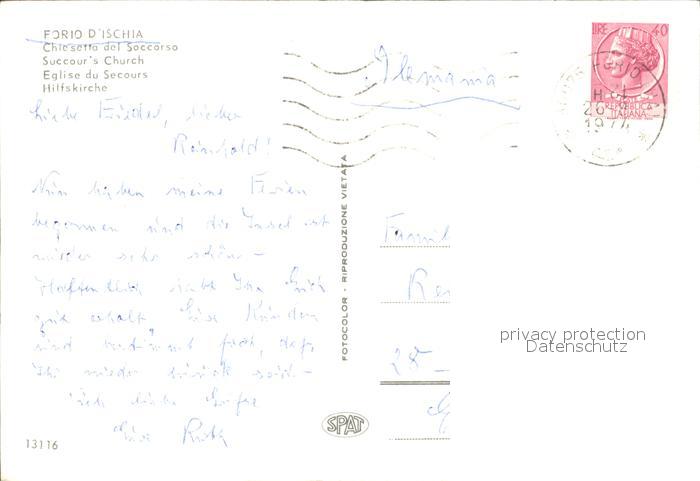 FORIO D'ISCHIA
Chiesetta del Soccorso
Succour's Church
Eglise du Secours
Hilfskirche
Liebe Friedel, lieber
Reinhold!
Nun haben meine Ferien
begonnen und die Insel ist
wieder sehr schön –
Hoffentlich habt Ihr Euch
gut erholt. Eure Kinder
sind bestimmt froh, daß
Ihr wieder zurück seid –
liebe Grüße
Eure Ruth
13116
FOTOCOLOR - RIPRODUZIONE VIETATA
SPAT
Alemania
LIRE 40
REPUBBLICA
ITALIANA
FORIO
26
Famil
28
privacy protection
Datenschutz